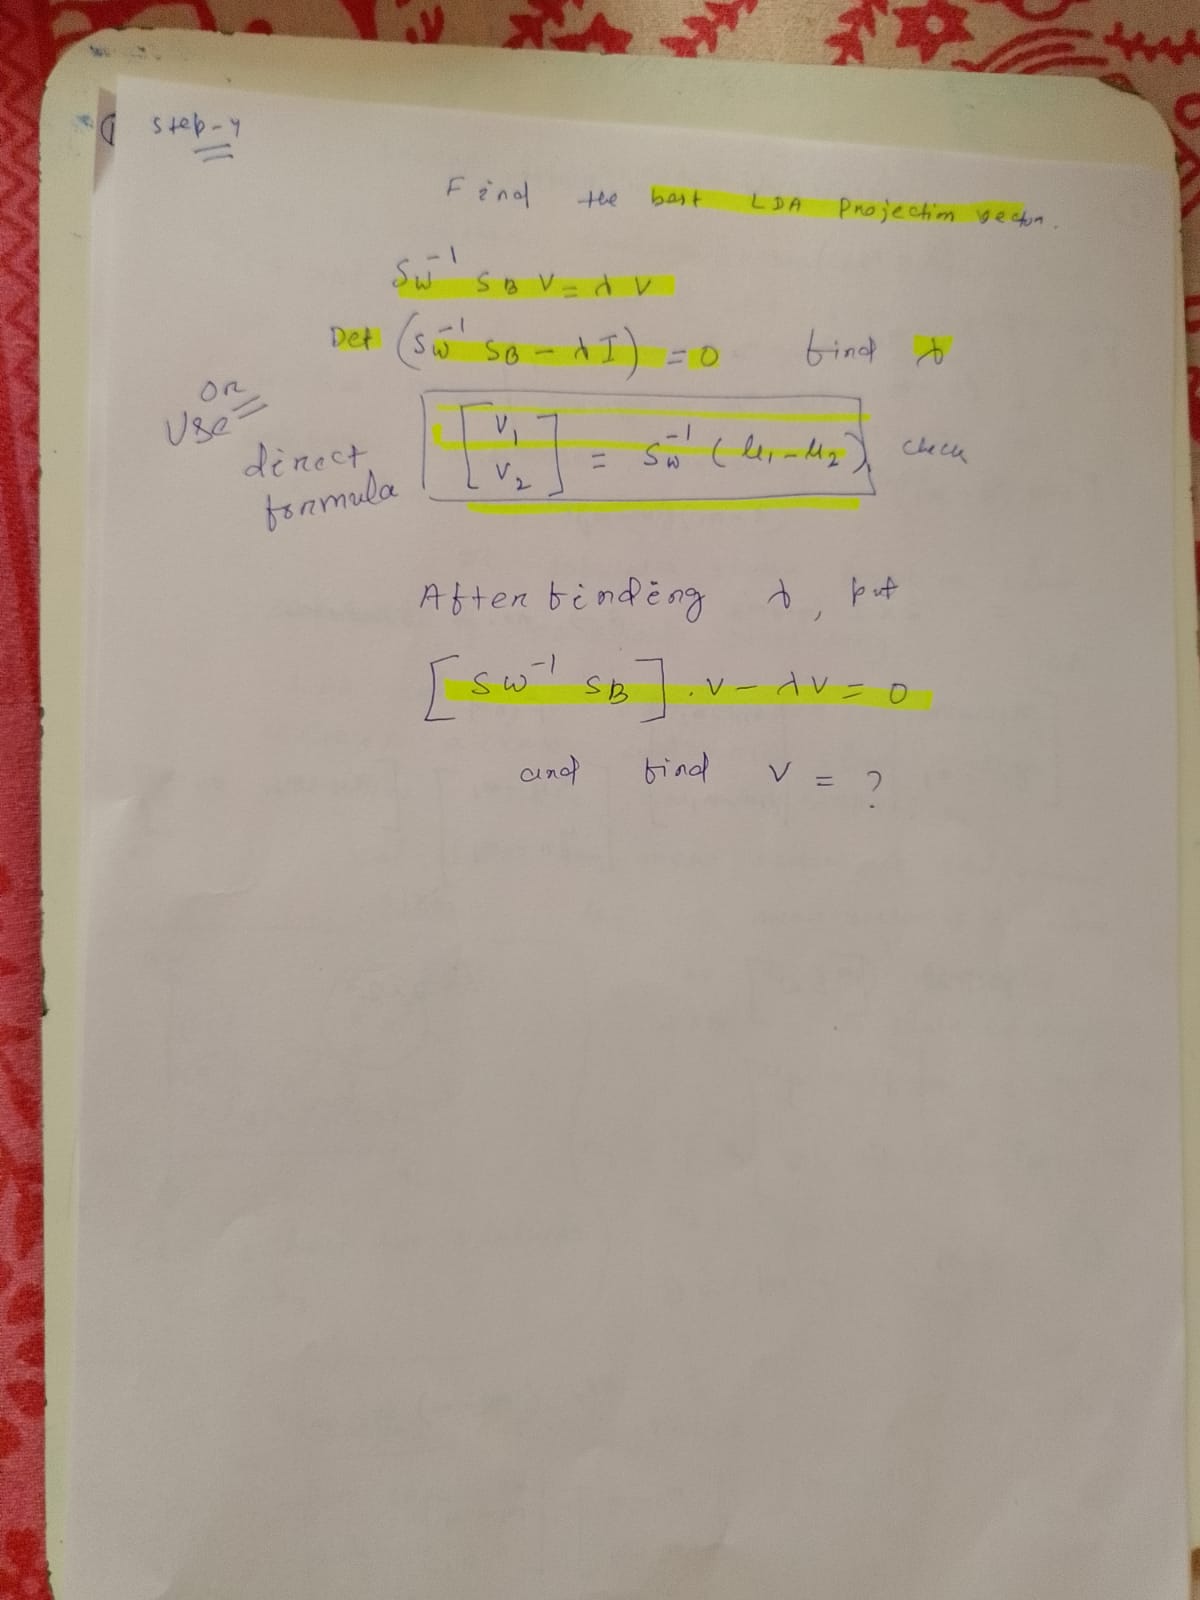 Step-4
Find the best LDA Projection vector.
Sw⁻¹ SB V = λ V
Det (Sw⁻¹ SB - λI) = 0 find λ
OR
Use
direct
formula
[V₁ V₂] = Sw⁻¹ (μ₁ - μ₂) check
After finding λ, put
[Sw⁻¹ SB] . V - λV = 0
and find V = ?